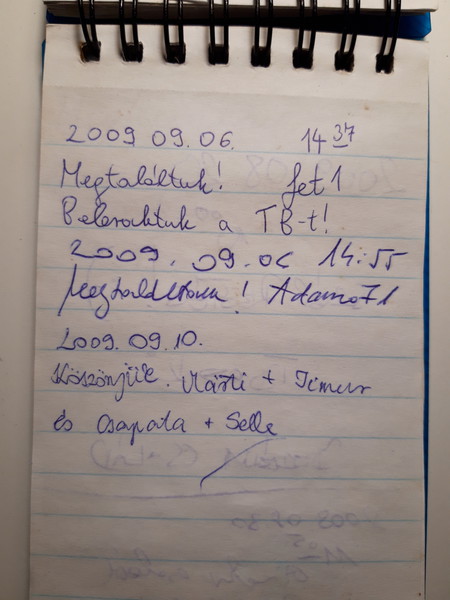 2009 09.06. 14 37
Megtaláltuk! fet1
Beleraktuk a TB-t!
2009. 09.06 14:55
Megtaláltam! Adamo71
2009.09.10.
Köszönjük. Márti + Timur
és csapata + Selle